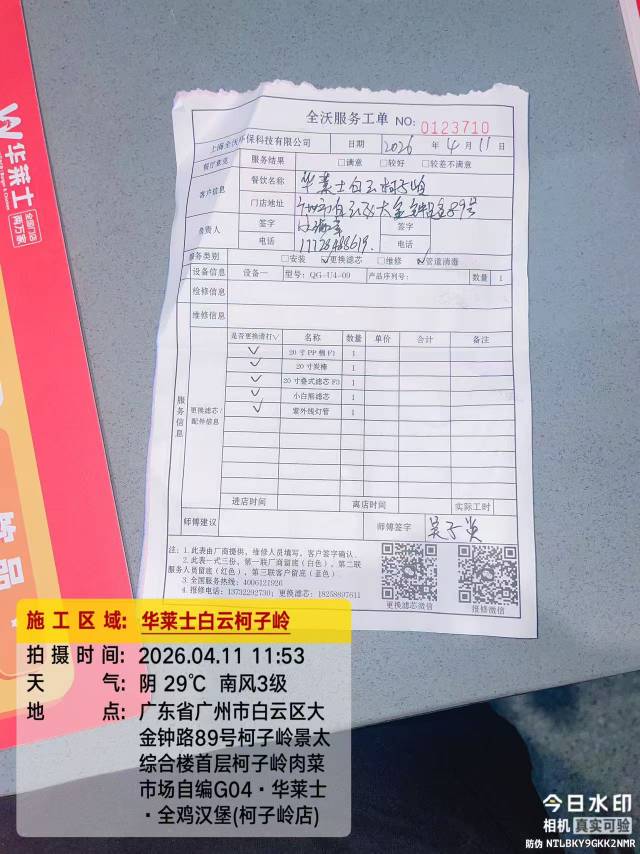 华莱士
全国门店
两万家
全沃服务工单 NO: 0123710
上海全沃环保科技有限公司 日期 2026 年 4 月 11 日
餐厅意见 服务结果 □满意 □较好 □较差不满意
客户信息 餐饮名称 华莱士白云柯子岭
门店地址 广州市白云区大金钟路89号
负责人 签字 签字
电话 17728488619. 电话
服务类别 □安装 ☑更换滤芯 □维修 ☑管道清毒
设备信息 设备一 型号: QG-U4-09 产品序列号: 数量 1
检修信息
维修信息
服务信息 更换滤芯/配件信息
是否更换请打√ 名称 数量 单价 合计 备注
✓ 20寸PP棉F1 1
✓ 20寸炭棒 1
✓ 20寸叠式滤芯F3 1
✓ 小白熊滤芯 1
✓ 紫外线灯管 1
进店时间 离店时间 实际工时
师傅建议 师傅签字
注:1.此表由厂商提供,维修人员填写,客户签字确认。
2.此表一式三份,第一联厂商留底(白色),第二联
服务人员留底(红色),第三联客户留底(蓝色)
3.全国服务热线:4006121926
4.报修电话:13732292730;更换滤芯:18258897611
更换滤芯微信 报修微信
饮品
施工区域: 华莱士白云柯子岭
拍摄时间: 2026.04.11 11:53
天气: 阴 29℃ 南风3级
地点: 广东省广州市白云区大
金钟路89号柯子岭景太
综合楼首层柯子岭肉菜
市场自编G04·华莱士
·全鸡汉堡(柯子岭店)
今日水印
相机 真实可验
防伪 NTLBKY9GKK2NMR